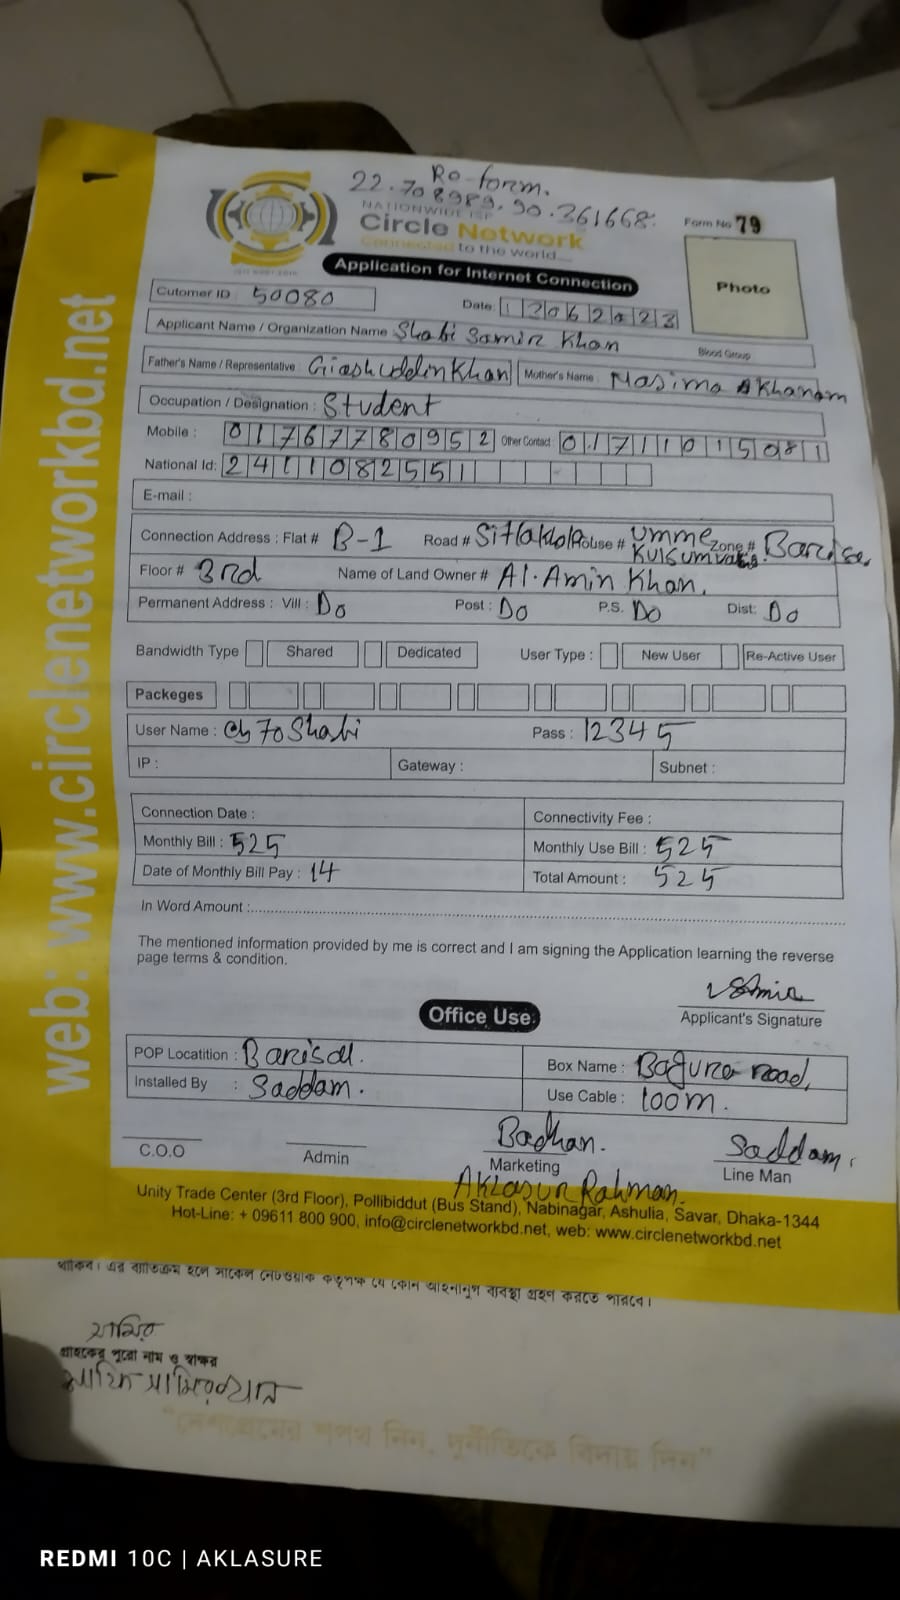 Re-form.
22.708989,90.361668.
NATIONWIDE ISP
Circle Network
Connected to the world....
Form No 79
Photo
Application for Internet Connection
Cutomer ID : 50080
Date: 12062023
Applicant Name / Organization Name Shabi Samir Khan
Blood Group
Father's Name / Representative : Giashuddin Khan Mother's Name : Nasima Akhanam
Occupation / Designation : Student
Mobile : 01767780952 Other Contact : 01711015081
National Id: 2411082551
E-mail :
Connection Address : Flat # B-1 Road # House # Umme Kulsum Zone #
Floor # 3rd Name of Land Owner # Al. Amin Khan,
Permanent Address : Vill : Do Post : Do P.S. Do Dist: Do
Bandwidth Type Shared Dedicated User Type : New User Re-Active User
Packeges
User Name : Pass : 12345
IP : Gateway : Subnet :
Connection Date : Connectivity Fee :
Monthly Bill : 525 Monthly Use Bill : 525
Date of Monthly Bill Pay : 14 Total Amount : 525
In Word Amount :
The mentioned information provided by me is correct and I am signing the Application learning the reverse
page terms & condition.
Applicant's Signature
Office Use
POP Locatition : Barisal. Box Name : Bagura road,
Installed By : Saddam. Use Cable : 100m.
Badhan. Saddam.
C.O.O Admin Marketing Line Man
Aklasur Rahman.
Unity Trade Center (3rd Floor), Pollibiddut (Bus Stand), Nabinagar, Ashulia, Savar, Dhaka-1344
Hot-Line: + 09611 800 900, info@circlenetworkbd.net, web: www.circlenetworkbd.net
web: www.circlenetworkbd.net
থাকিব। এর ব্যতিক্রম হলে সার্কেল নেটওয়ার্ক কর্তৃপক্ষ যে কোন আইনানুগ ব্যবস্থা গ্রহণ করতে পারবে।
সামির
গ্রাহকের পুরো নাম ও স্বাক্ষর
সামির খান
"দেশপ্রেমের শপথ নিন, দুর্নীতিকে বিদায় দিন"
REDMI 10C | AKLASURE